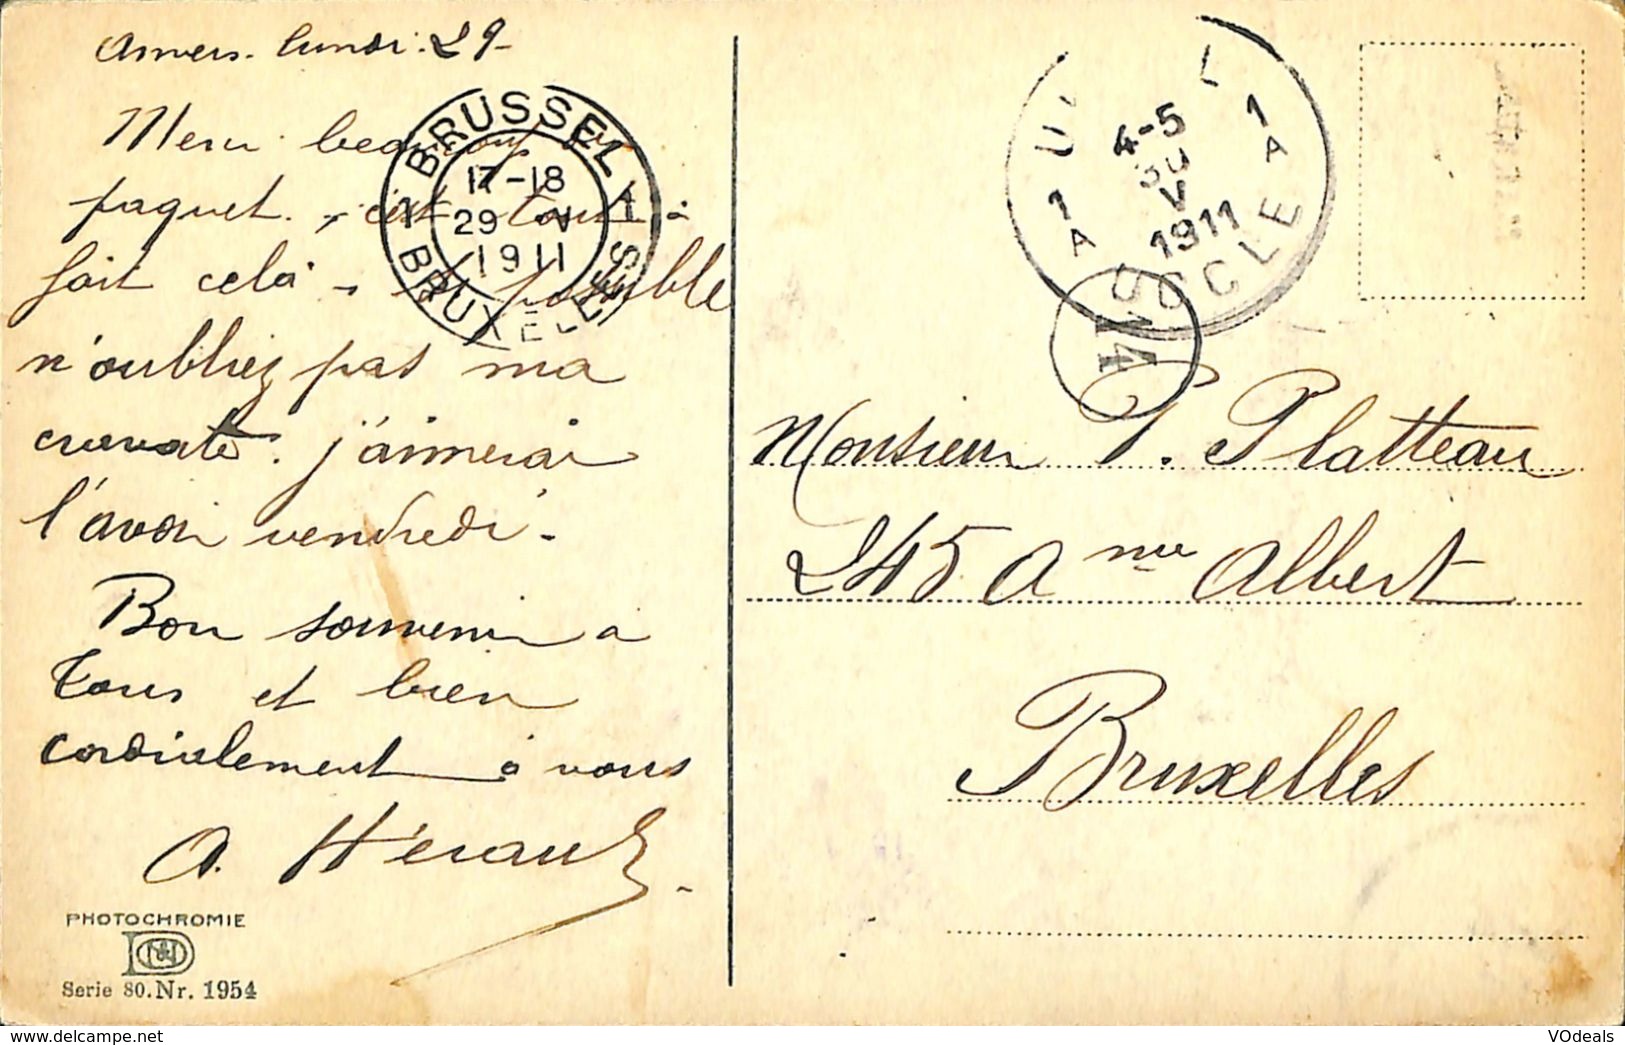 Anvers. lundi. 29-
Merci beaucoup pr
paquet. c'est tout à
fait celà - si possible
n'oubliez pas ma
cravate. j'aimerai
l'avoir vendredi.
Bon souvenir a
Tous et bien
cordialement à vous
A. Hérault
PHOTOCHROMIE
Serie 80. Nr. 1954
1 BRUSSEL 1
17-18
29 V
1911
BRUXELLES
UCCLE
4-5
30
V
1911
1 A
1 A
UCCLE
14
Monsieur P. Platteau
245 Anue Albert
Bruxelles
VOdeals